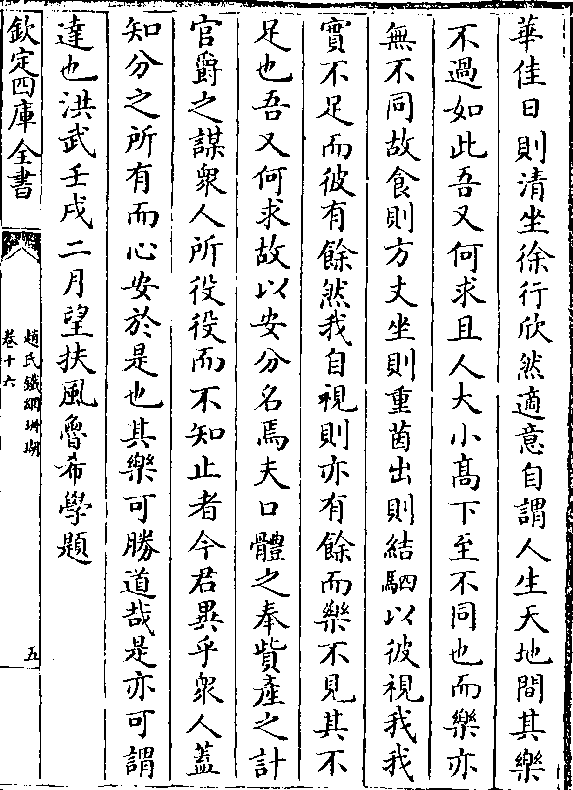 華佳日則清坐徐行欣然適意自謂人生天地間其樂
不過如此吾又何求且人大小髙下至不同也而樂亦
無不同故食則方丈坐則重茵出則結駟以彼視我我
實不足而彼有餘然我自視則亦有餘而樂不見其不
足也吾又何求故以安分名焉夫口體之奉貲產之計
官爵之謀衆人所役役而不知止者今君異乎衆人蓋
知分之所有而心安於是也其樂可勝道哉是亦可謂
達也洪武壬戌二月望扶風魯希學題
欽定四庫全書
趙氏鐵網珊瑚
卷十六
五